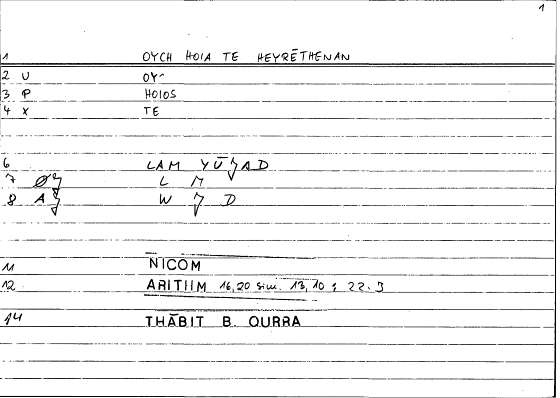 1
1 OYCH HOIA TE HEYRĒTHENAN
2 U OY~
3 P HOIOS
4 X TE
6 LAM YŪʿAD
7 Øʿ L M
8 Aʿ W ʿ D
11 NICOM
12 ARITHM 16,20 sim. 13,10; 22.3
14 THĀBIT B. QURRA